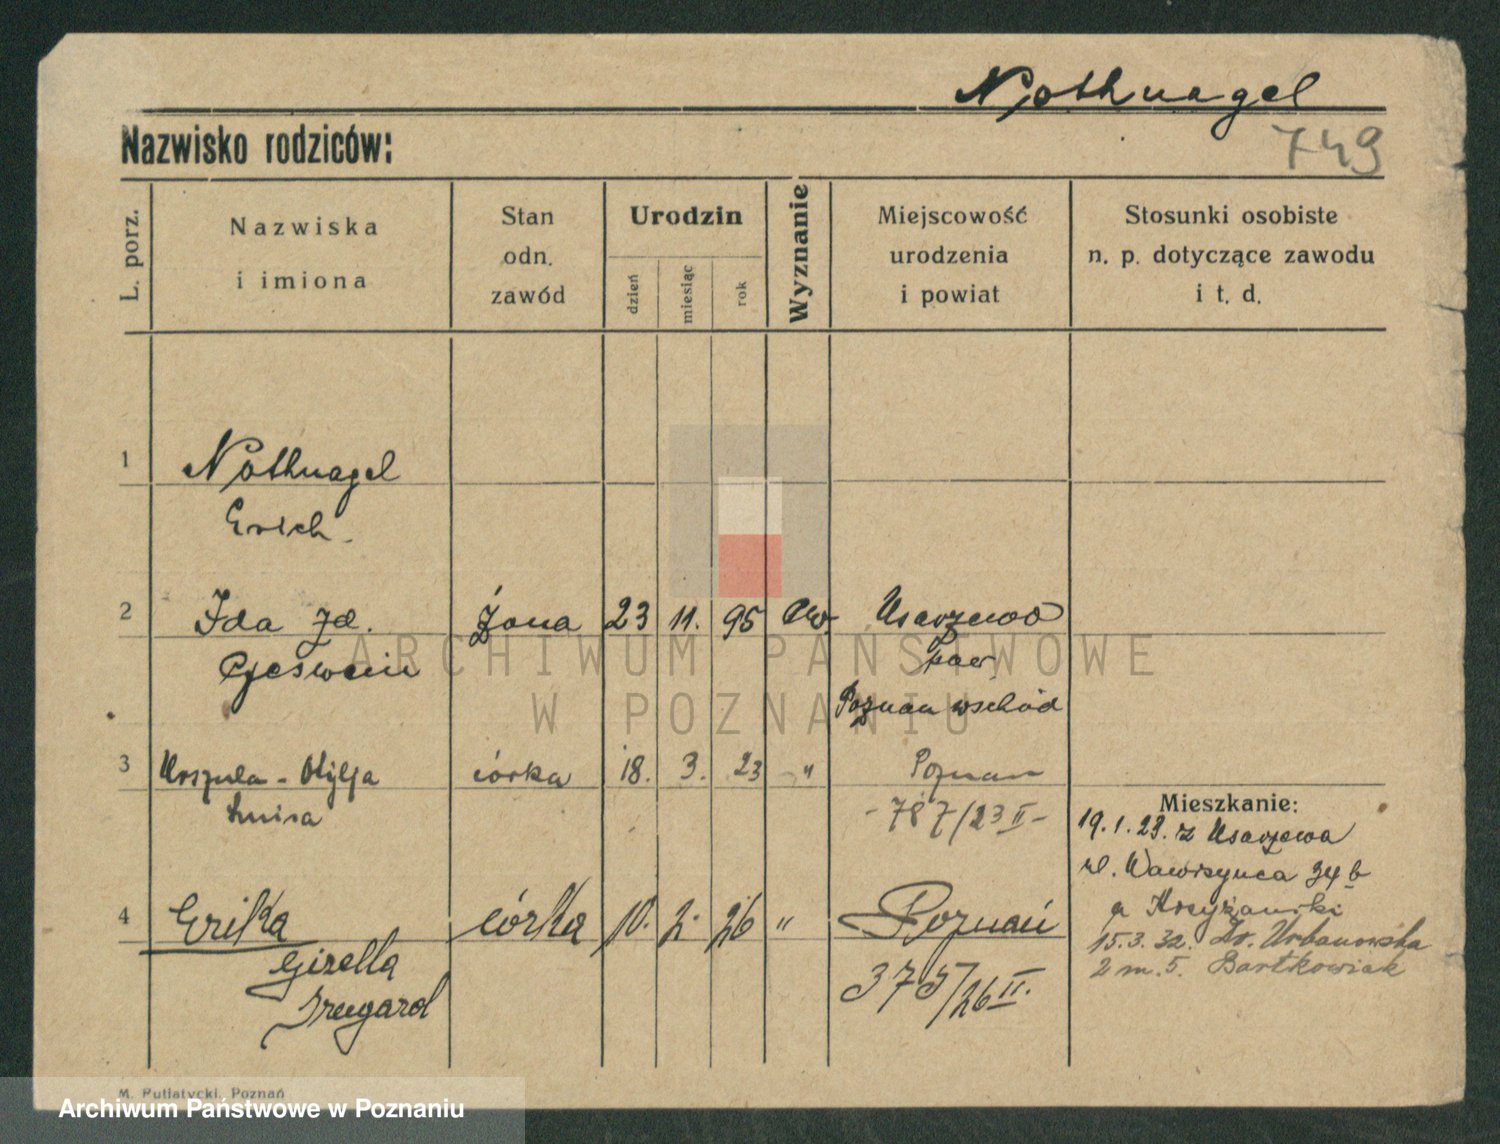 Nothnagel
749
Nazwisko rodziców:
L. porz.
Nazwiska
i imiona
Stan
odn.
zawód
Urodzin
dzień
miesiąc
rok
Wyznanie
Miejscowość
urodzenia
i powiat
Stosunki osobiste
n. p. dotyczące zawodu
i t. d.
1
Nothnagel
Erich.
2 Ida żona 23 11. 95 ew. Usarzewo
pow.
Poznań wschód
3 Urszula - Otylja córka 18. 3. 23 " Poznań
Luisa - 787/23 II -
4 Erika córka 10. 2. 26 " Poznań
Gizella
Irmgard
375/26 II.
Mieszkanie:
19. 1. 23. z Usarzewa
ul. Wawrzyńca 34 b
15. 3. 32. Urbanowska
2 m. 5. Bartkowiak
M. Putiatycki, Poznań
ARCHIWUM PAŃSTWOWE
W POZNANIU
Archiwum Państwowe w Poznaniu